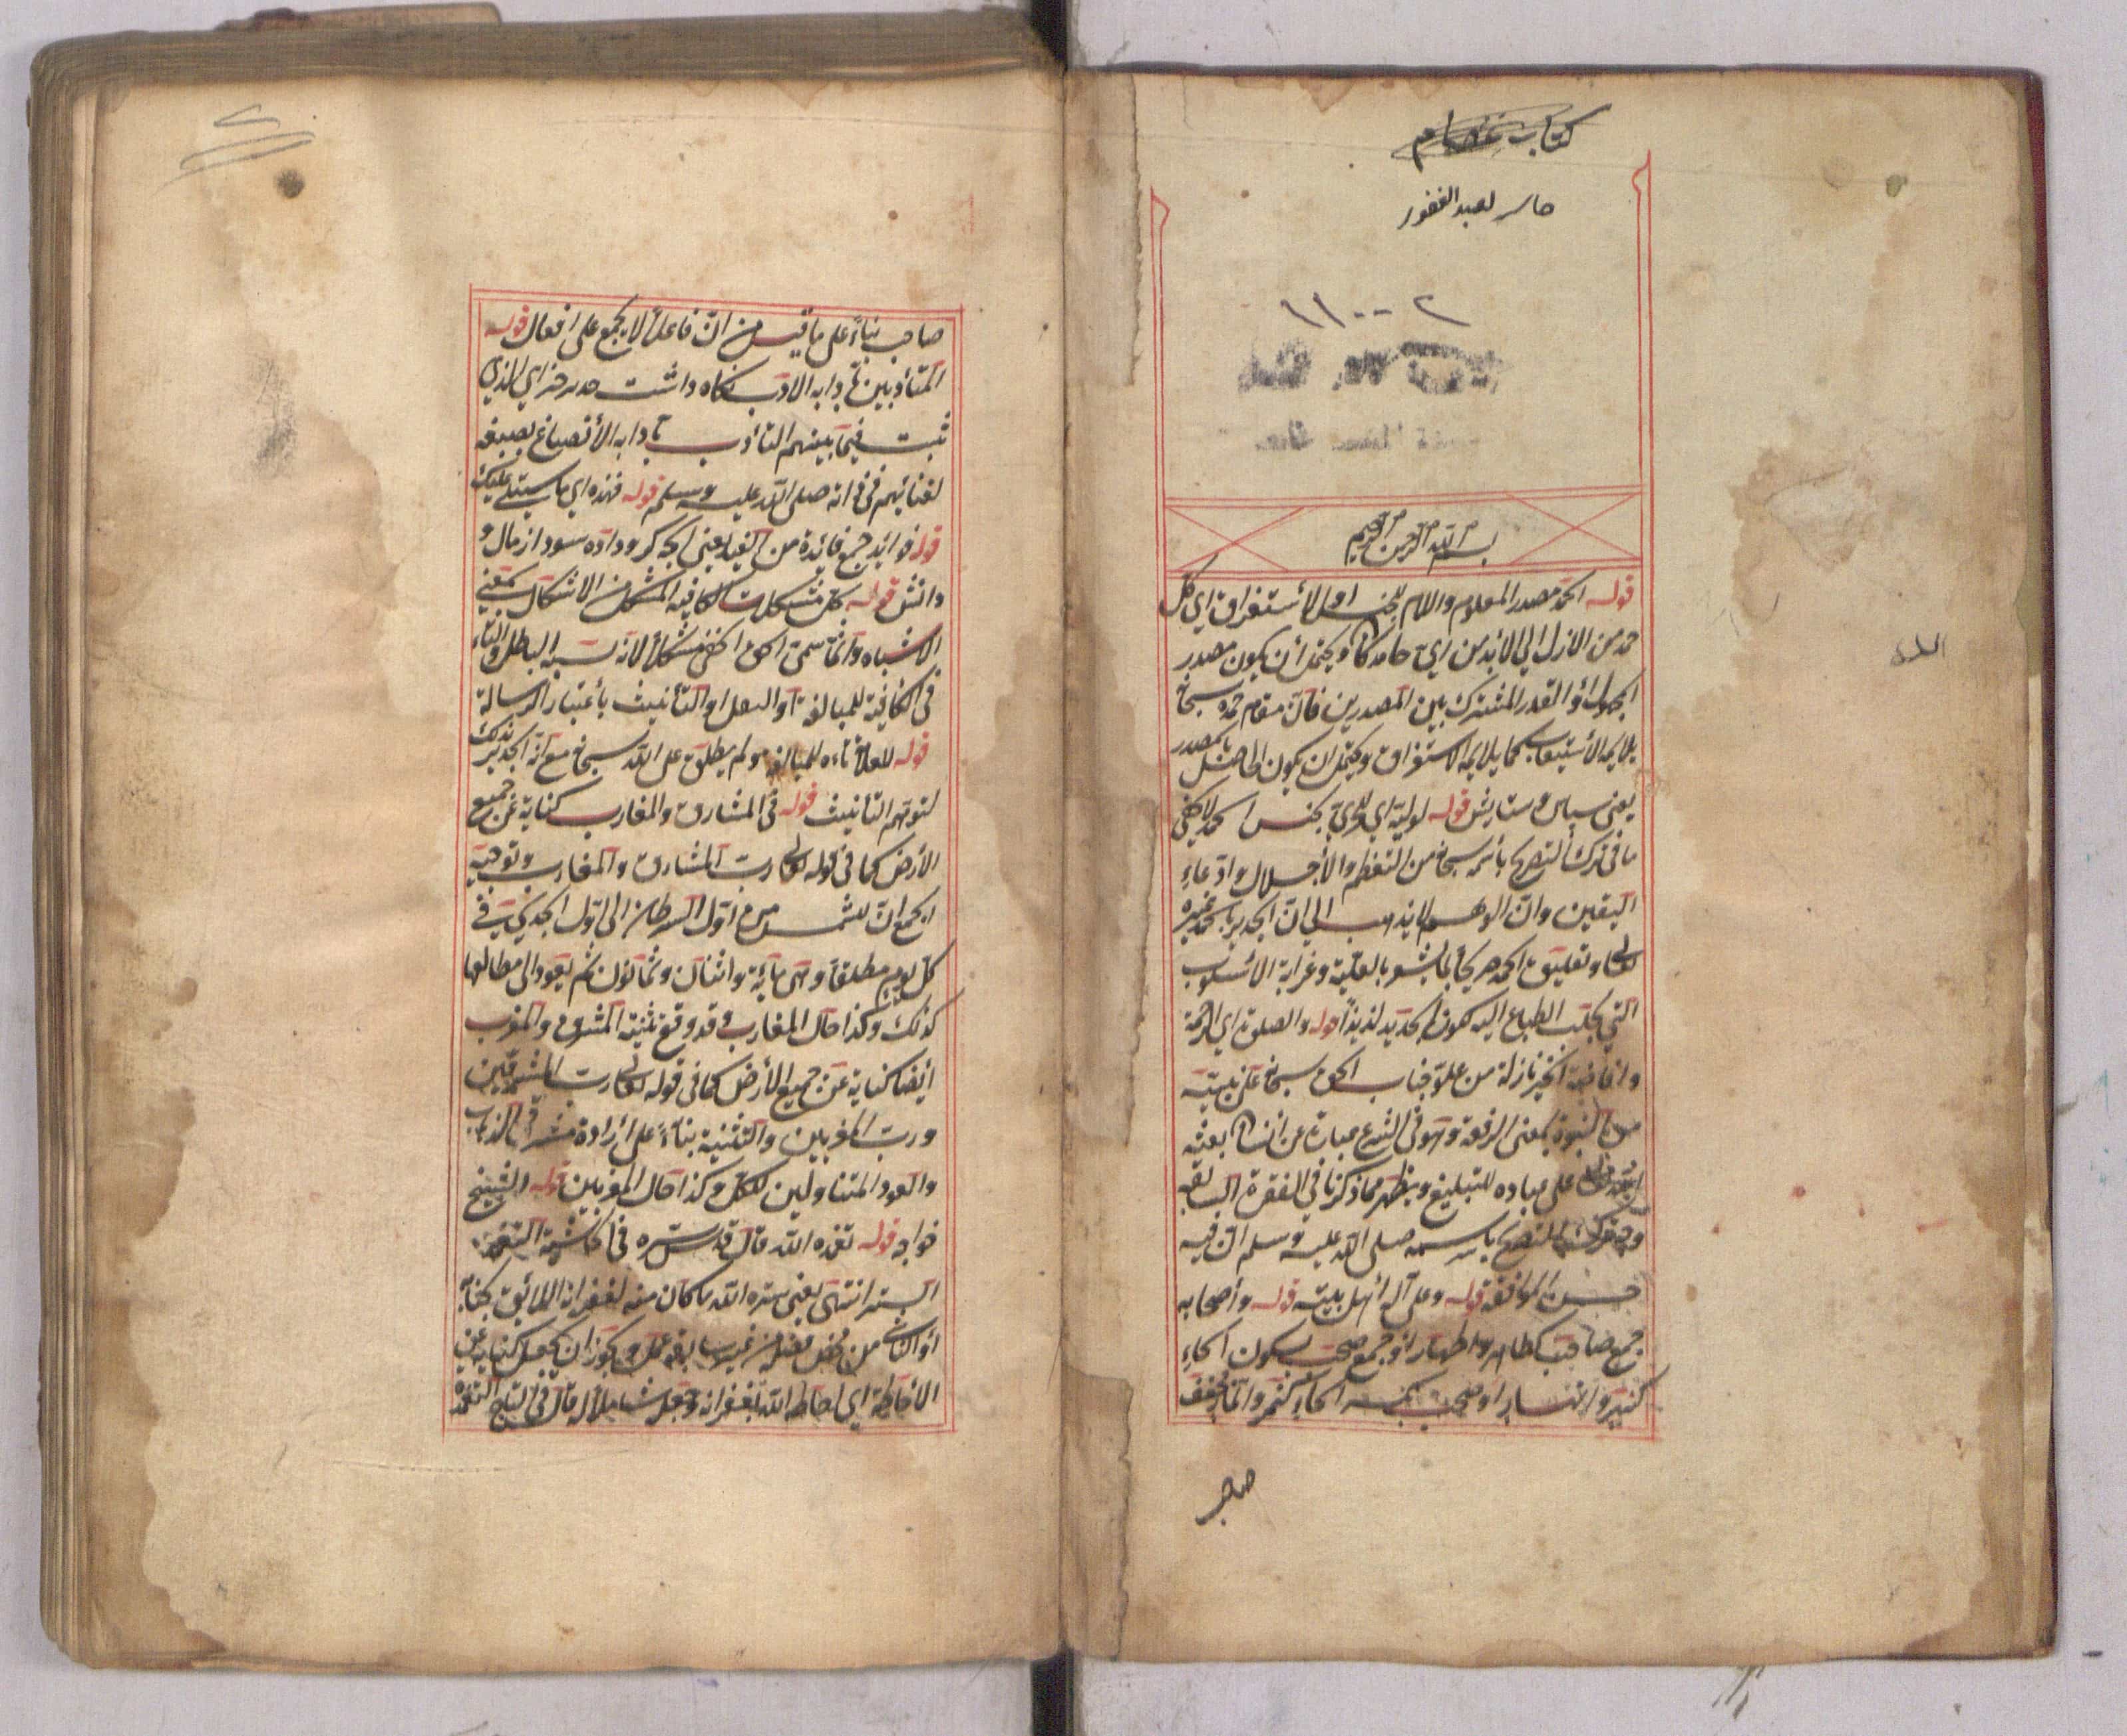 كتاب
لعبد الغفور
١١٠٠٢
بسم الله الرحمن الرحيم
قوله الحمد مصدر المعلوم واللام للجنس او للاستغراق اي كل
حمد من الازل الي الابد من اي حامد كان ويحتمل أن يكون مصدر
المجهول أو القدر المشترك بين المصدرين فان مقام حمده سبحانه
يلايمه الأستيعاب كما يلايمه الاستغراق ويحتمل ان يكون الحاصل بالمصدر
يعني سپاس وستايش قوله لوليه اي بجنس الحمد لا يخفى
ما في ترك التصريح بأسمه سبحانه من التعظيم والأجلال وادعاء
اليقين وان الوهم لا يذهب الي ان الجدير بالحمد غيره
تعالى وتعليق الحمد صريحاً بما يشعر بالعلية وغرابة الأسلوب
التي يجلب الطباع اليه لكونه كجديد لذيذاً قوله والصلوة اي الرحمة
وافاضة الخير نازلة من علو جناب الحق سبحانه على نبيه
من النبوة بمعنى الرفعة وهو في الشرع عبارة عن انسان بعثه
الله تعالى على عباده للتبليغ ويظهر مما ذكرنا في الفقرة السابقة
وجه ترك التصريح باسمه صلى الله عليه وسلم ان فيه
حسن الموافقة قوله وعلى آله أهل بيته قوله وأصحابه
جمع صاحب كطاهر واطهار او جمع صحب بسكون الحاء
وانهار او صحب بكسر الحاء كنمر وانمار مخفف
صاحب
صاحب بناءً على ما قيل من ان فاعلاً لا يجمع على افعال قوله
المتأدبين بآدابه الادب نگاه داشت حد هر چيز اي الذي
ثبت فيما بينهم التأدب بآدابه الأنصباغ بصبغه
لفنائهم في ذاته صلى الله عليه وسلم قوله فهذه اي ما سيتلى عليك
قوله فوايد جمع فائدة من الفيد يعني آنچه گرو داده سود از مال و
دانش قوله بحل مشكلات الكافيه المشكل من الاشكال بمعني
الاشباه وانما سمى الحق الخفي مشكلاً لانه يشبه الباطل والتاء
في الكافية للمبالغة أو النقل او التأنيث بأعتبار الرسالة
قوله للعلامة تاءه للمبالغة ولم يطلق على الله سبحانه مع انه الجدير بذلك
لتوهم التانيث قوله في المشارق والمغارب كناية عن جميع
الأرض كما في قوله تعالى رب المشارق والمغارب وتوجيه
الجمع ان للشمس من اول السرطان الى اول الجدي في
كل يوم مطلقاً وهي مأية واثنان وثمانون ثم يعود الى مطالعها
كذلك وكذا حال المغارب وقد وقع تثنية المشرق والمغرب
أيضا كناية عن جميع الأرض كما في قوله تعالى رب المشرقين
ورب المغربين والتثنية بناءً على ارادة مشرقي الذهاب
والعود المتناولين للكل وكذا حال المغربين قوله الشيخ
خواجه قوله تغمده الله قال قدس سره في الحاشية التغمد
الستر انتهى يعني ستره الله ما كان منه لغفرانه اللائق بجنابه
أو الناشي من محض فضله من غير سابقة عمل ويجوز ان يجعل كناية عن
الاحاطة اي احاطه الله بغفرانه وجعله شاملاً له قال في التاج التغمد